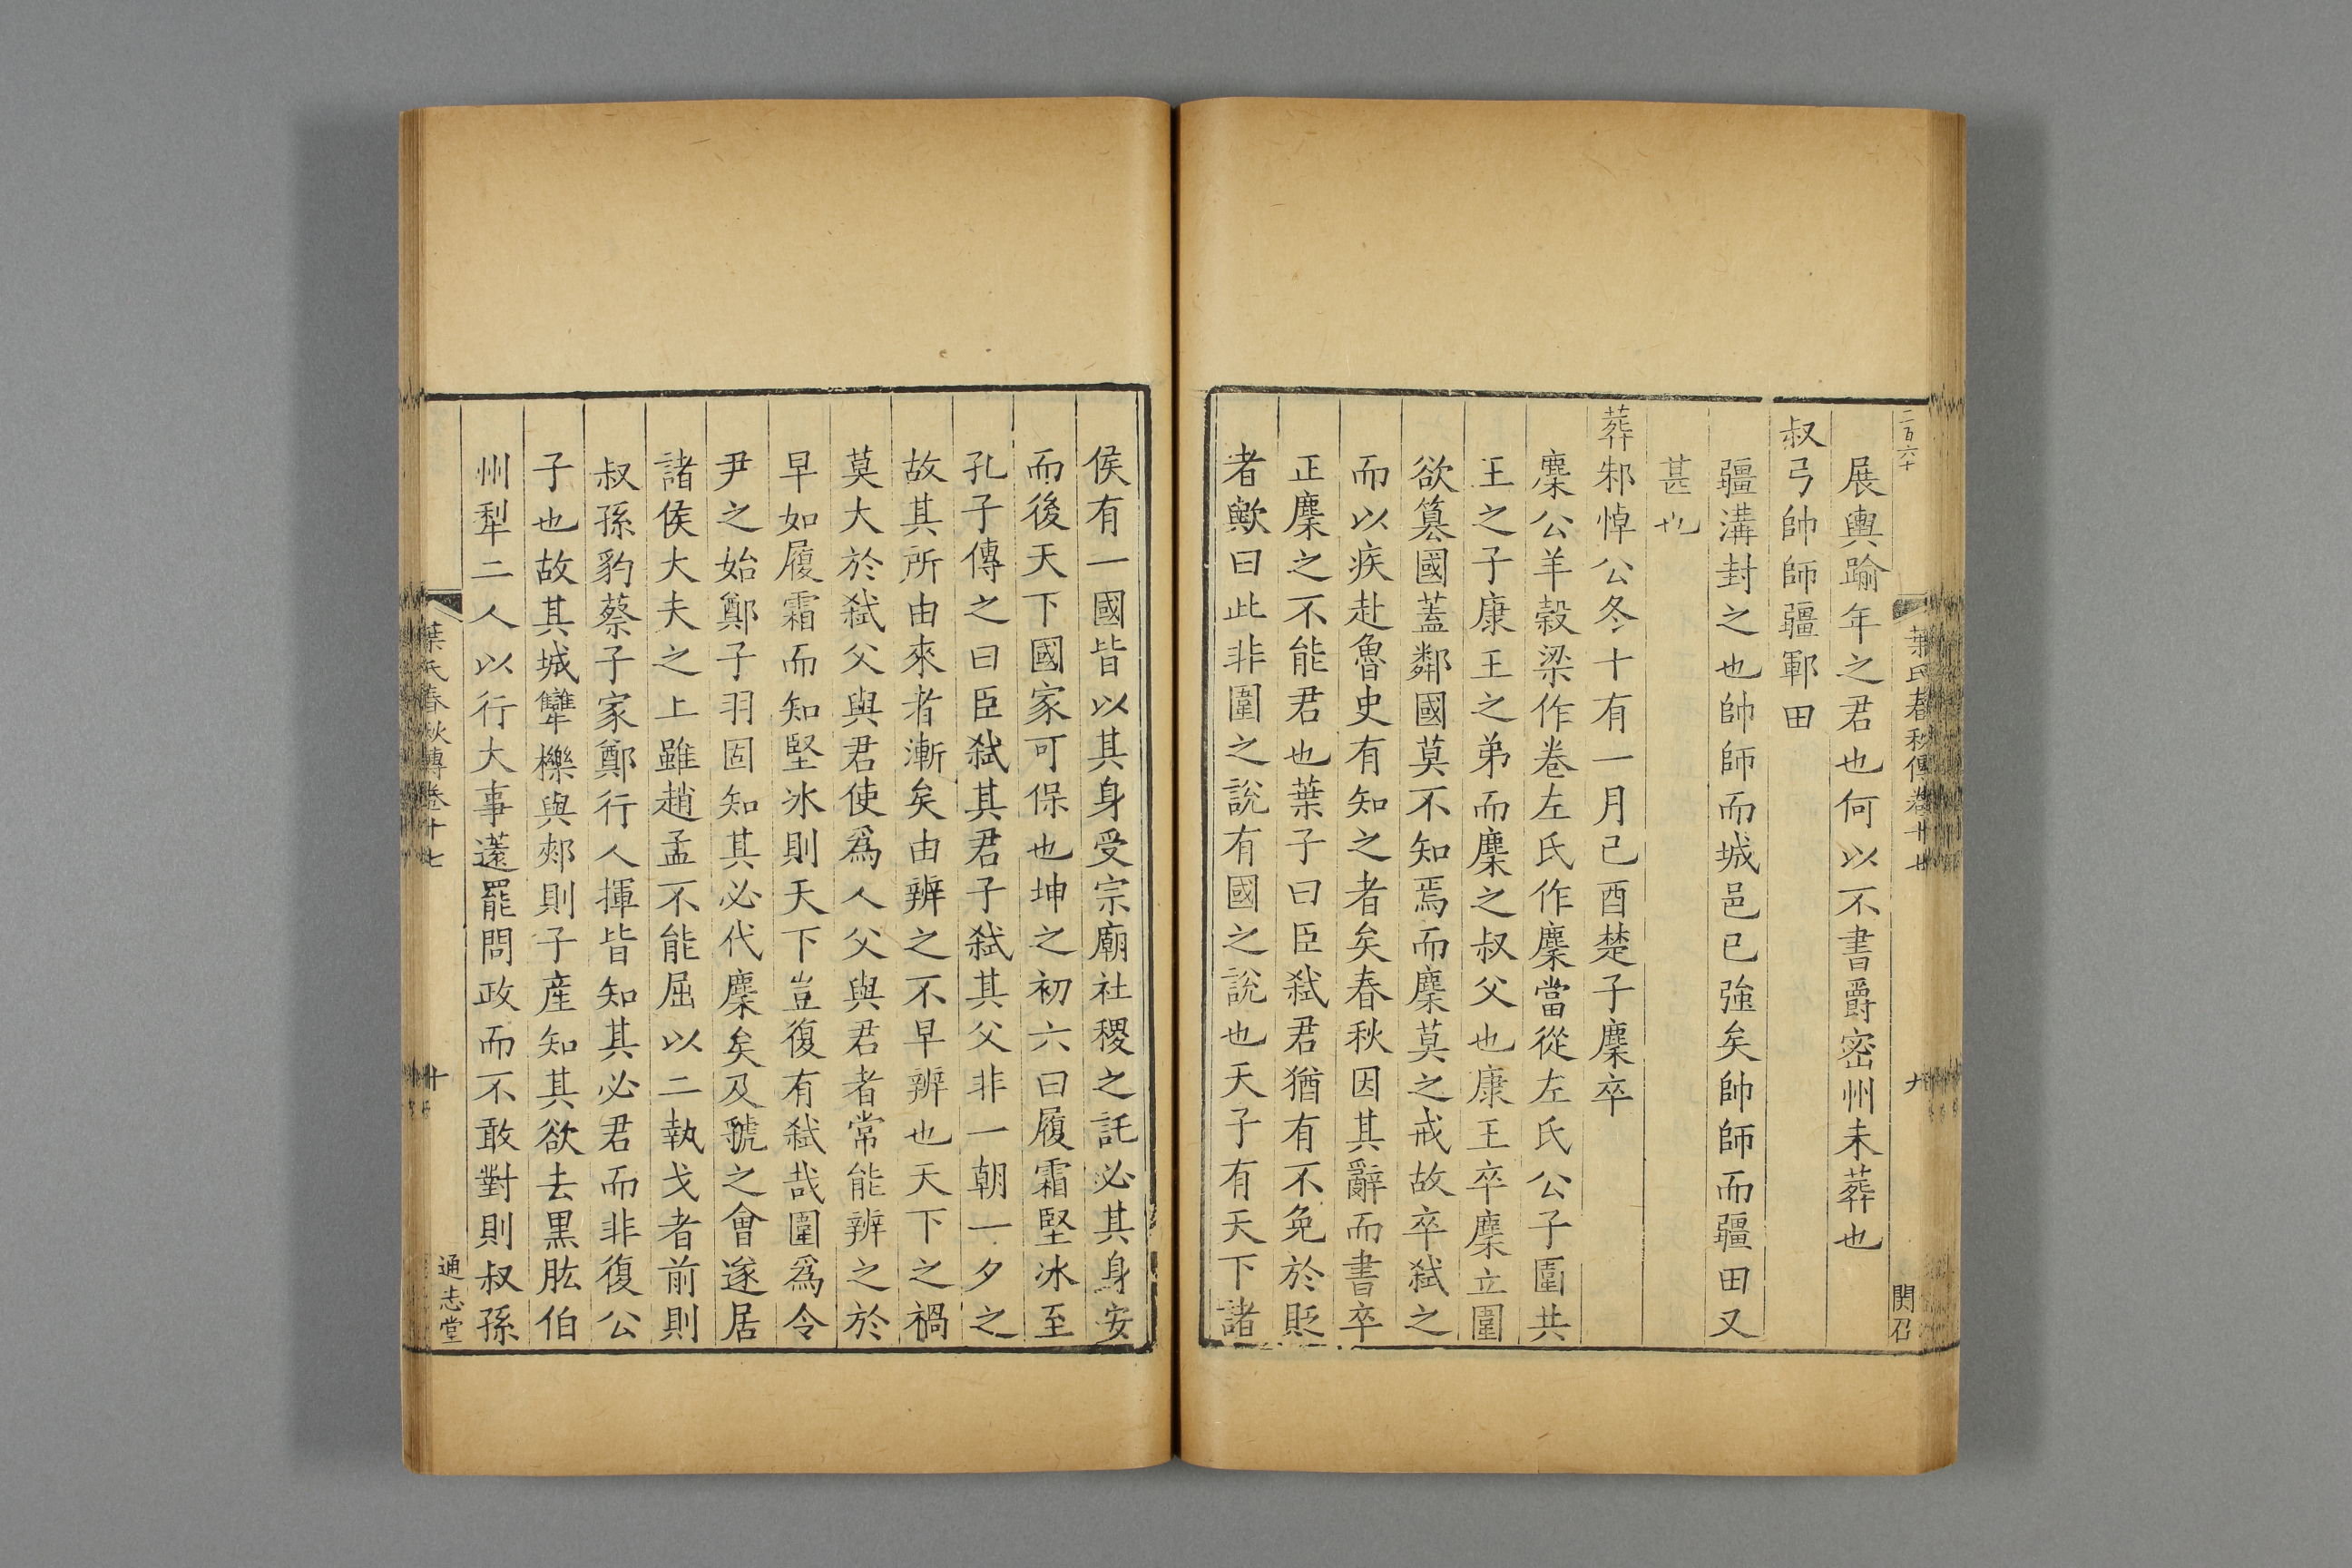 二百六十
葉氏春秋傳卷十七
九
関召
展輿踰年之君也何以不書爵密州未葬也
叔弓帥師疆鄆田
疆溝封之也帥師而城邑已強矣帥師而疆田又
甚也
葬邾悼公冬十有一月己酉楚子麇卒
麇公羊穀梁作卷左氏作麇當從左氏公子圍共
王之子康王之弟而麇之叔父也康王卒麇立圍
欲簒國蓋鄰國莫不知焉而麇莫之戒故卒弑之
而以疾赴魯史有知之者矣春秋因其辭而書卒
正麇之不能君也葉子曰臣弑君猶有不免於貶
者歟曰此非圍之說有國之說也天子有天下諸
侯有一國皆以其身受宗廟社稷之託必其身安
而後天下國家可保也坤之初六曰履霜堅冰至
孔子傳之曰臣弑其君子弑其父非一朝一夕之
故其所由來者漸矣由辨之不早辨也天下之禍
莫大於弑父與君使爲人父與君者常能辨之於
早如履霜而知堅冰則天下豈復有弑哉圍爲令
尹之始鄭子羽固知其必代麇矣及虢之會遂居
諸侯大夫之上雖趙孟不能屈以二執戈者前則
叔孫豹蔡子家鄭行人揮皆知其必君而非復公
子也故其城犨櫟與郟則子產知其欲去黒肱伯
州犁二人以行大事薳罷問政而不敢對則叔孫
葉氏春秋傳卷十七
十
通志堂